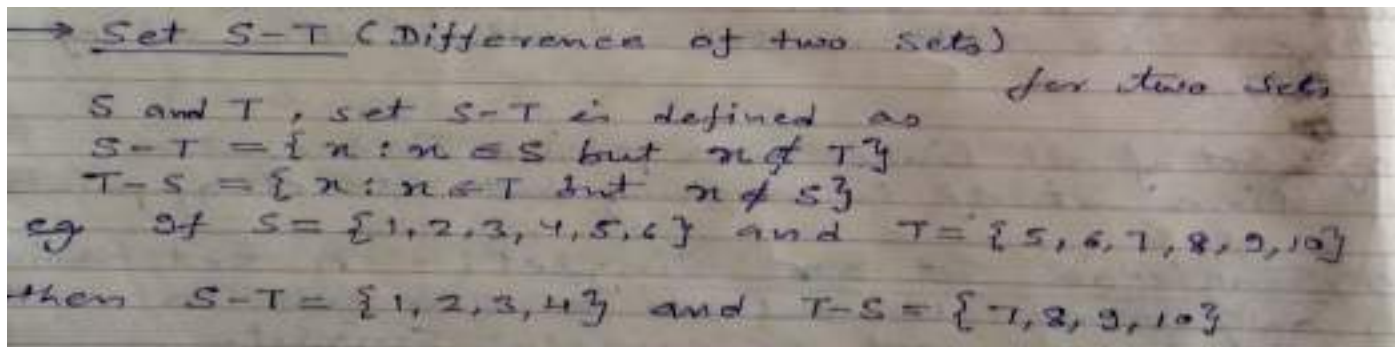 → Set S-T (Difference of two sets)
for two sets
S and T, set S-T is defined as
S-T = {x : x ∈ S but x ∉ T}
T-S = {x : x ∈ T but x ∉ S}
eg If S = {1, 2, 3, 4, 5, 6} and T = {5, 6, 7, 8, 9, 10}
then S-T = {1, 2, 3, 4} and T-S = {7, 8, 9, 10}